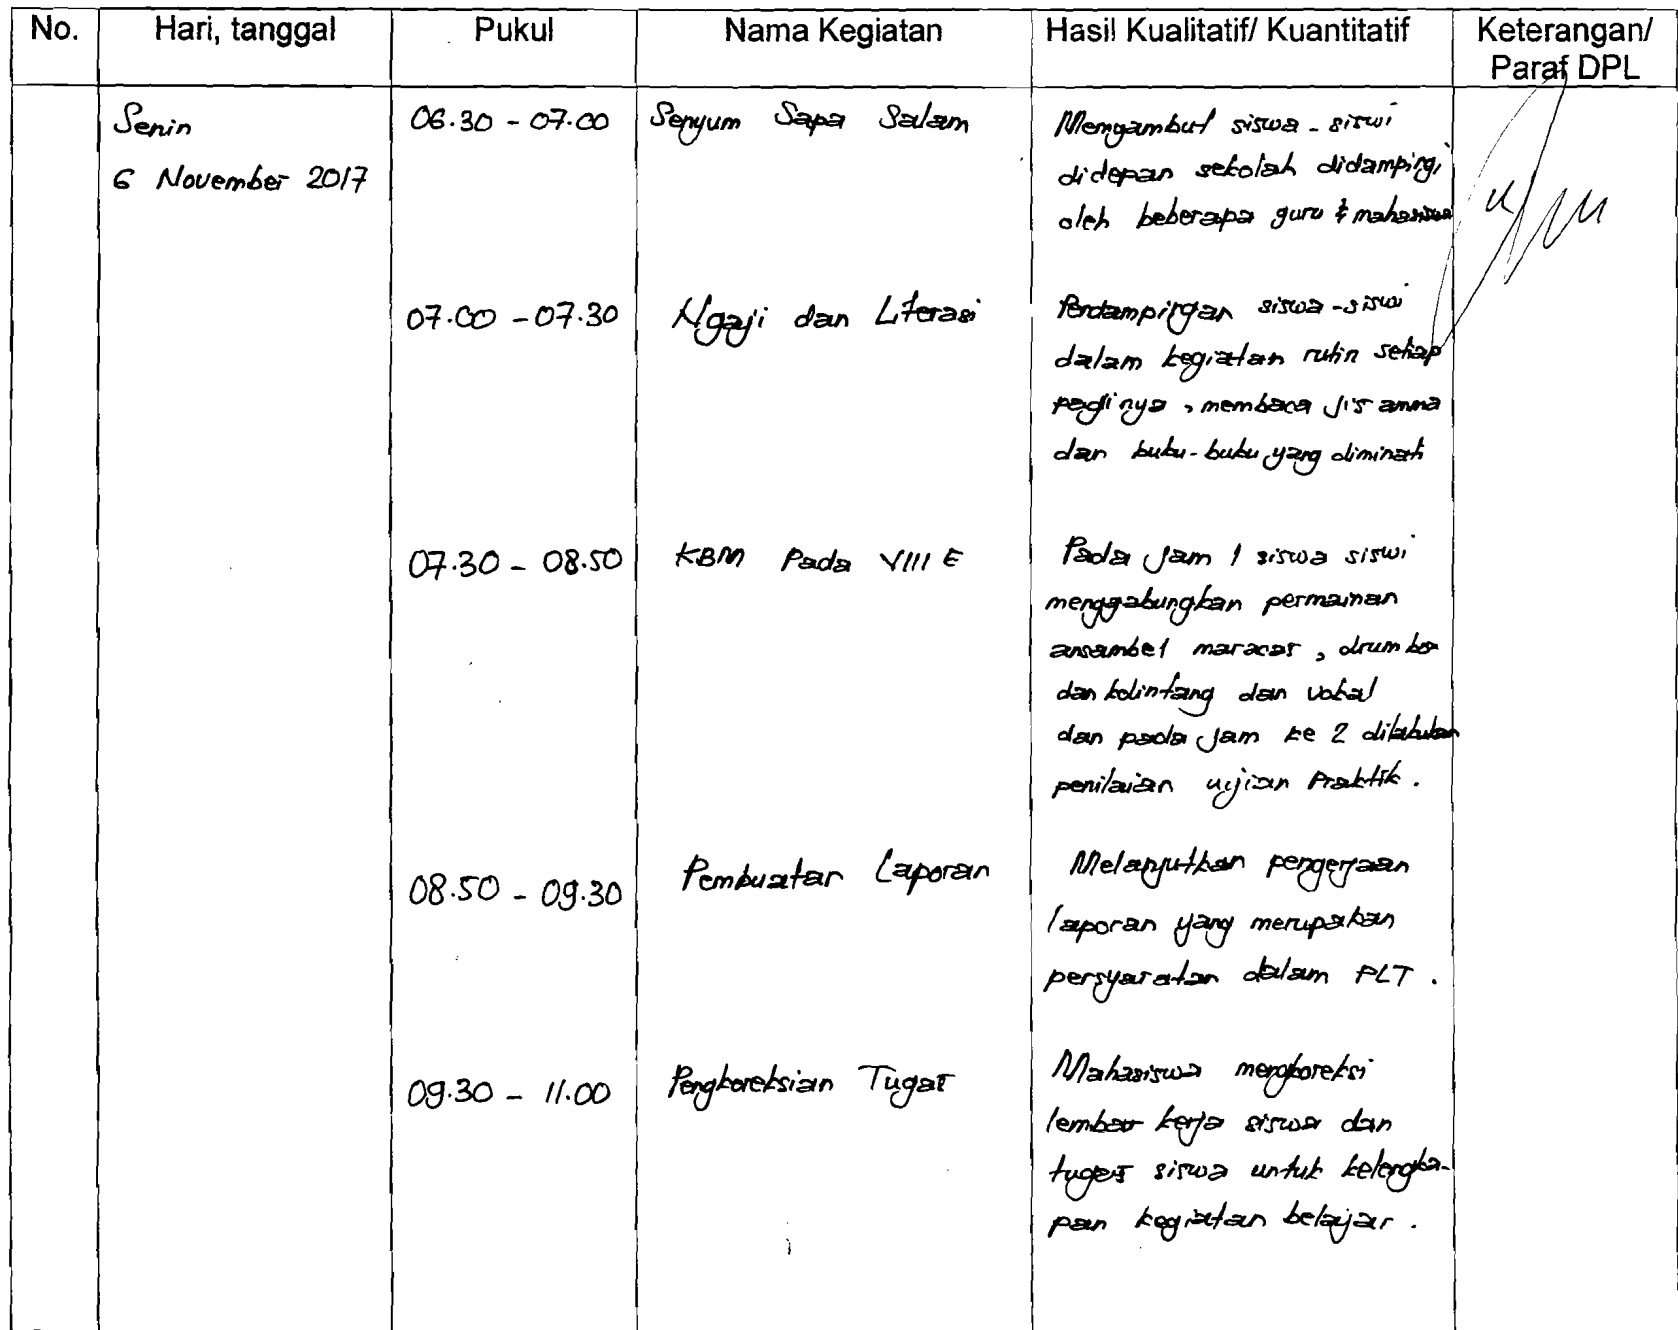 No. Hari, tanggal Pukul Nama Kegiatan Hasil Kualitatif/ Kuantitatif Keterangan/
Paraf DPL
Senin 06.30 - 07.00 Senyum Sapa Salam Mengambut siswa - siswi
6 November 2017 didepan sekolah didampingi
oleh beberapa guru & mahasiswa
07.00 - 07.30 Ngaji dan Literasi Pendampingan siswa - siswi
dalam kegiatan rutin setiap
paginya , membaca
dan buku - buku yang diminati
07.30 - 08.50 KBM Pada VIII E Pada Jam 1 siswa siswi
menggabungkan permainan
ansambel maracas , drum
dan kolintang dan vokal
dan pada Jam ke 2 dilakukan
penilaian ujian Praktik .
08.50 - 09.30 Pembuatan Laporan Melanjutkan pengerjaan
laporan yang merupakan
persyaratan dalam PLT .
09.30 - 11.00 Pengkoreksian Tugas Mahasiswa mengkoreksi
lembar kerja siswa dan
tugas siswa untuk kelengka-
pan kegiatan belajar .